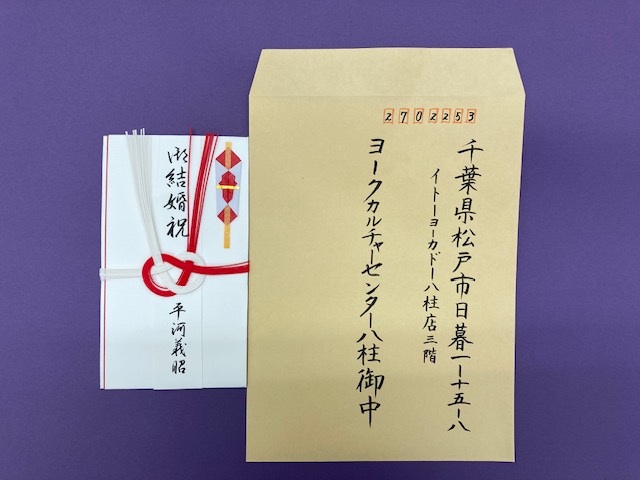 2702253
千葉県松戸市日暮一ー十五ー八
イトーヨーカドー八柱店三階
ヨークカルチャーセンター八柱御中
御結婚祝
平河義昭